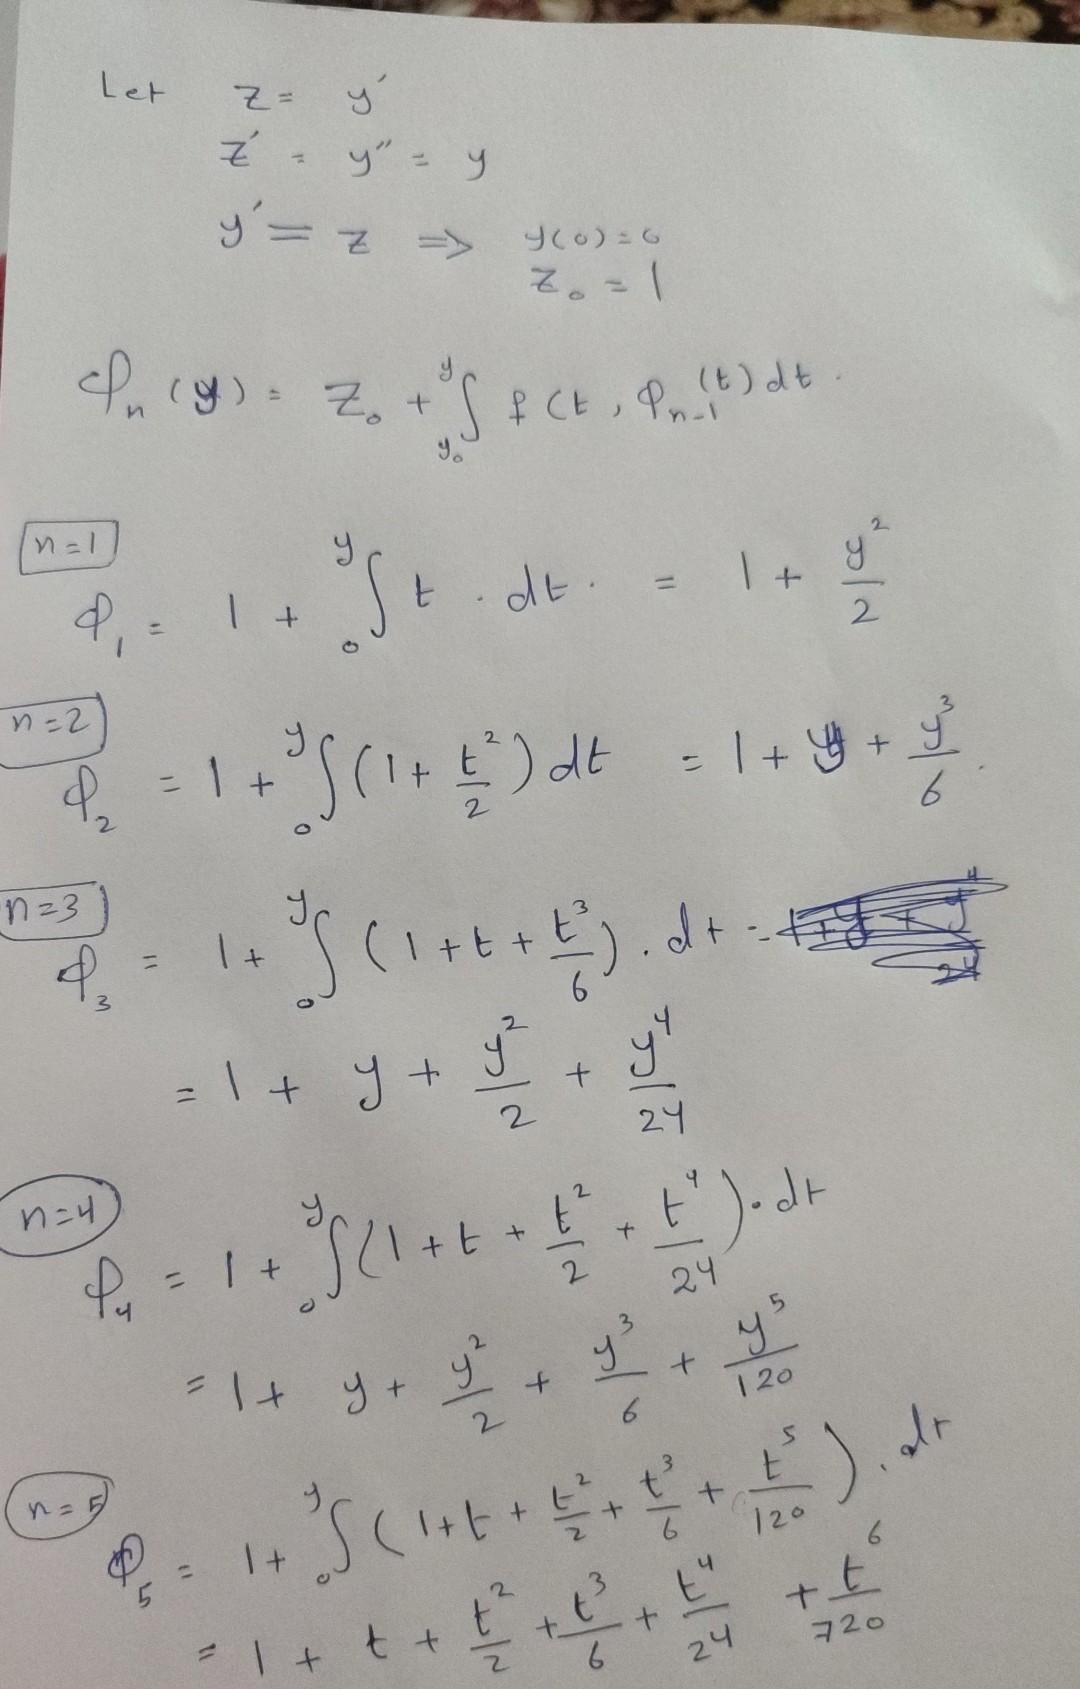 Let z = y'
z' = y'' = y
y' = z => y(0) = 0
z₀ = 1
φₙ(y) = z₀ + ∫_{y₀}^{y} f(t, φₙ₋₁(t) dt.
n=1
φ₁ = 1 + ∫₀^y t . dt. = 1 + y²/2
n=2
φ₂ = 1 + ∫₀^y (1 + t²/2) dt = 1 + y + y³/6.
n=3
φ₃ = 1 + ∫₀^y (1 + t + t³/6) . dt =
= 1 + y + y²/2 + y⁴/24
n=4
φ₄ = 1 + ∫₀^y (1 + t + t²/2 + t⁴/24) . dt
= 1 + y + y²/2 + y³/6 + y⁵/120
n=5
φ₅ = 1 + ∫₀^y (1 + t + t²/2 + t³/6 + t⁵/120) . dt
= 1 + t + t²/2 + t³/6 + t⁴/24 + t⁶/720